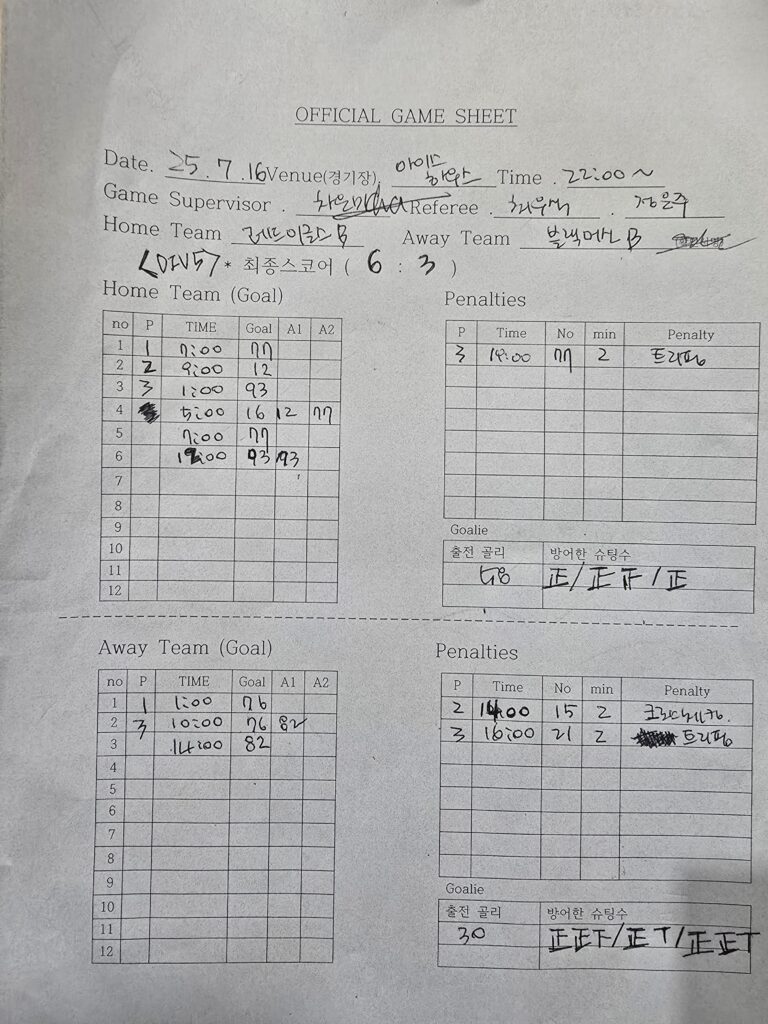 OFFICIAL GAME SHEET
Date. 25.7.16 Venue(경기장). 아이스 하우스 Time . 22:00~
Game Supervisor . Referee . 최우석 . 정은주
Home Team 레드이글스 B Away Team 블랙메산 B
<DIV5> * 최종스코어 ( 6 : 3 )
Home Team (Goal)
no P TIME Goal A1 A2
1 1 7:00 77
2 2 9:00 12
3 3 1:00 93
4 5:00 16 12 77
5 7:00 77
6 19:00 93 93
7
8
9
10
11
12
Penalties
P Time No min Penalty
3 14:00 77 2 트리핑
Goalie
출전 골리 방어한 슈팅수
正 / 正 正 / 正
Away Team (Goal)
no P TIME Goal A1 A2
1 1 1:00 76
2 3 10:00 76 82
3 14:00 82
4
5
6
7
8
9
10
11
12
Penalties
P Time No min Penalty
2 14:00 15 2 크로스체킹.
3 16:00 21 2 트리핑
Goalie
출전 골리 방어한 슈팅수
30 正正下/正 T/正正T